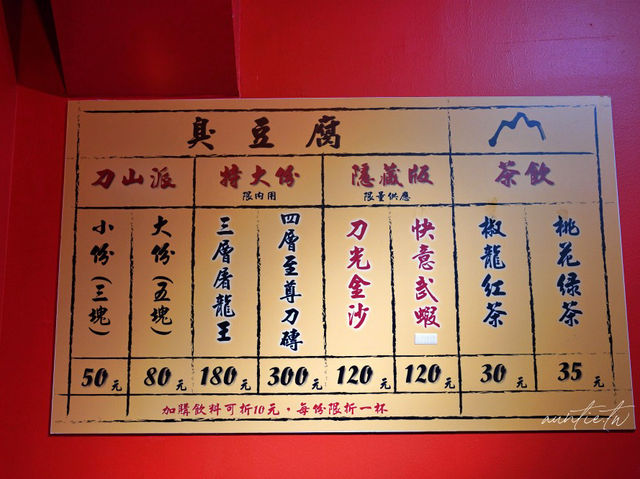 臭豆腐
刀山派 特大份 隱藏版 茶飲
限內用 限量供應
小份(三塊) 大份(五塊) 三層屠龍王 四層至尊刀磚 刀光金沙 快意武蝦 椒龍紅茶 桃花綠茶
50元 80元 180元 300元 120元 120元 30元 35元
加購飲料可折10元，每份限折一杯
auntie.tw